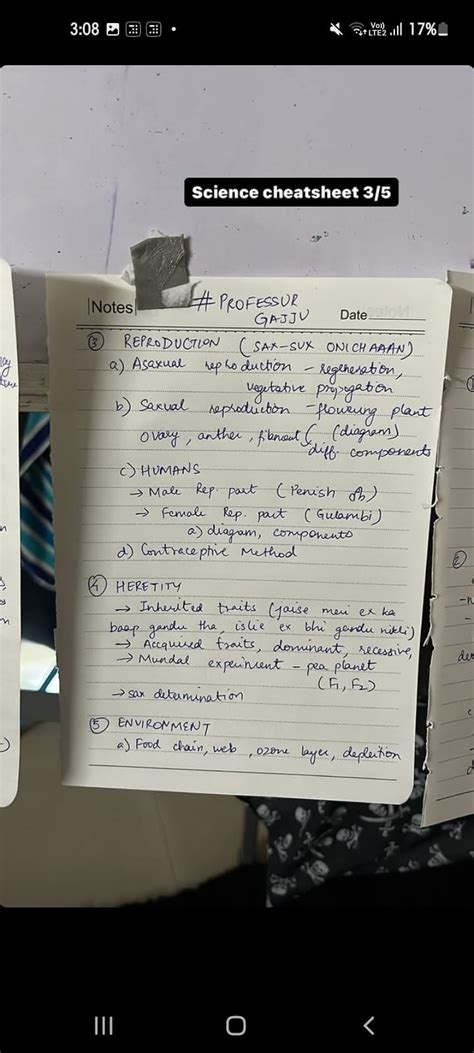 3:08
Vo))
LTE2
17%
Science cheatsheet 3/5
Notes
# PROFESSUR
GAJJU
Date
③ REPRODUCTION (SAX-SUX ONICHAAAN)
a) Asaxual reproduction - regeneration,
vegetative propogation
b) Saxual reproduction - flowering plant
Ovary, anther, (diagram)
diff. components
c) HUMANS
→ Male Rep. part (Penish)
→ Female Rep. part (Gulambi)
a) diagram, components
d) Contraceptive Method
④ HERETITY
→ Inherited traits (jaise meri ex ka
baap gandu tha, islie ex bhi gandu nikli)
→ Acquired traits, dominant, recessive,
→ Mundal experiment - pea planet
(F1, F2)
→ sax determination
⑤ ENVIRONMENT
a) Food chain, web, ozone layer, depletion